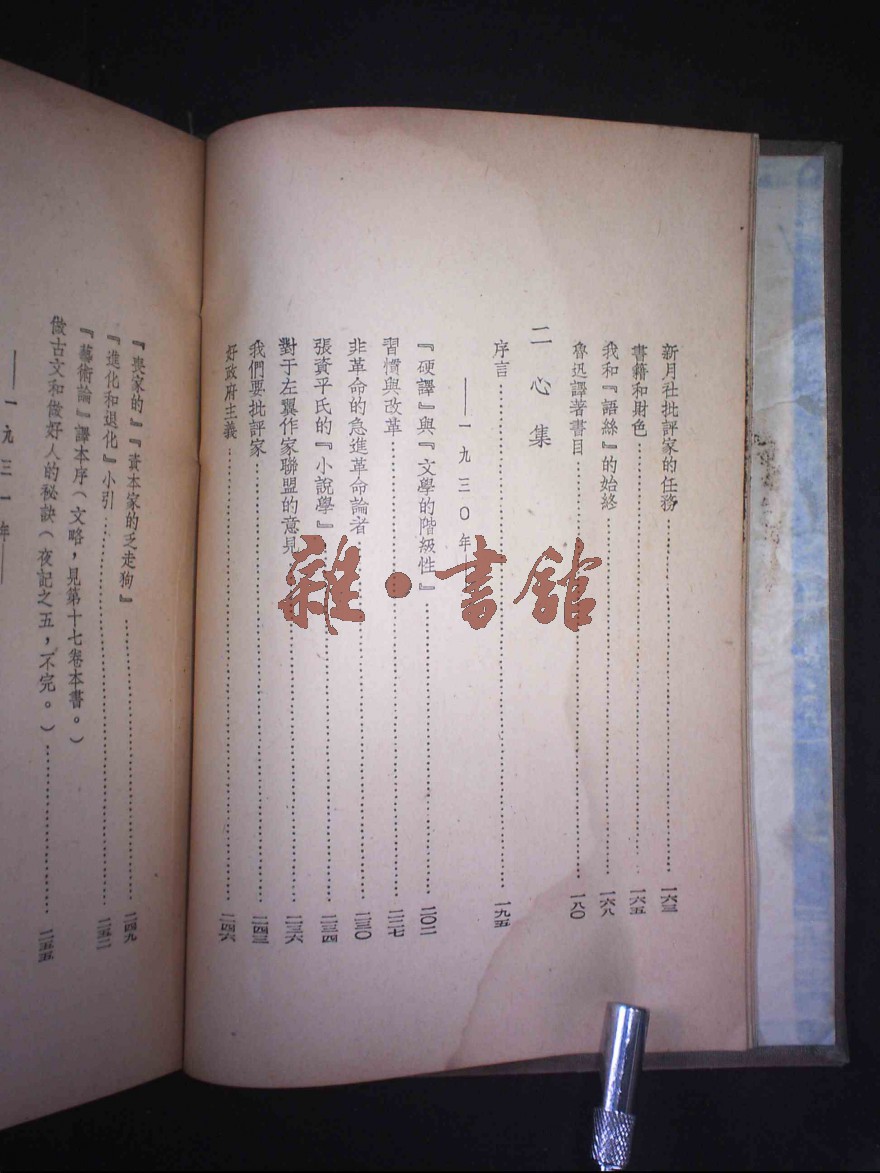 新月社批評家的任務………一六三
書籍和財色………一六五
我和『語絲』的始終………一六八
魯迅譯著書目………一八〇
二心集
序言………一九五
——一九三〇年——
『硬譯』與『文學的階級性』………二〇二
習慣與改革………二二七
非革命的急進革命論者………二三〇
張資平氏的『小說學』………二三四
對于左翼作家聯盟的意見………二三六
我們要批評家………二四三
好政府主義………二四六
『喪家的』『資本家的乏走狗』………二四九
『進化和退化』小引………二五二
『藝術論』譯本序（文略，見第十七卷本書。）
做古文和做好人的秘訣（夜記之五，不完。）………二五五
——一九三一年——
雜·書館